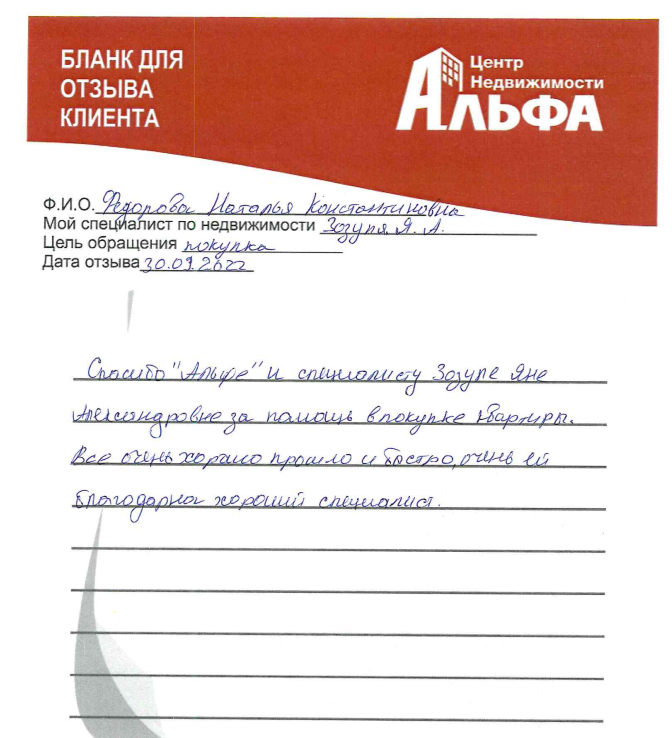 БЛАНК ДЛЯ
ОТЗЫВА
КЛИЕНТА
Центр
Недвижимости
АЛЬФА
Ф.И.О. Федорова Наталья Константиновна
Мой специалист по недвижимости Зозуля Я. А.
Цель обращения покупка
Дата отзыва 30.09.2022
Спасибо "Альфе" и специалисту Зозуле Яне
Александровне за помощь в покупке квартиры.
Все очень хорошо прошло и быстро, очень ей
благодарна хороший специалист.